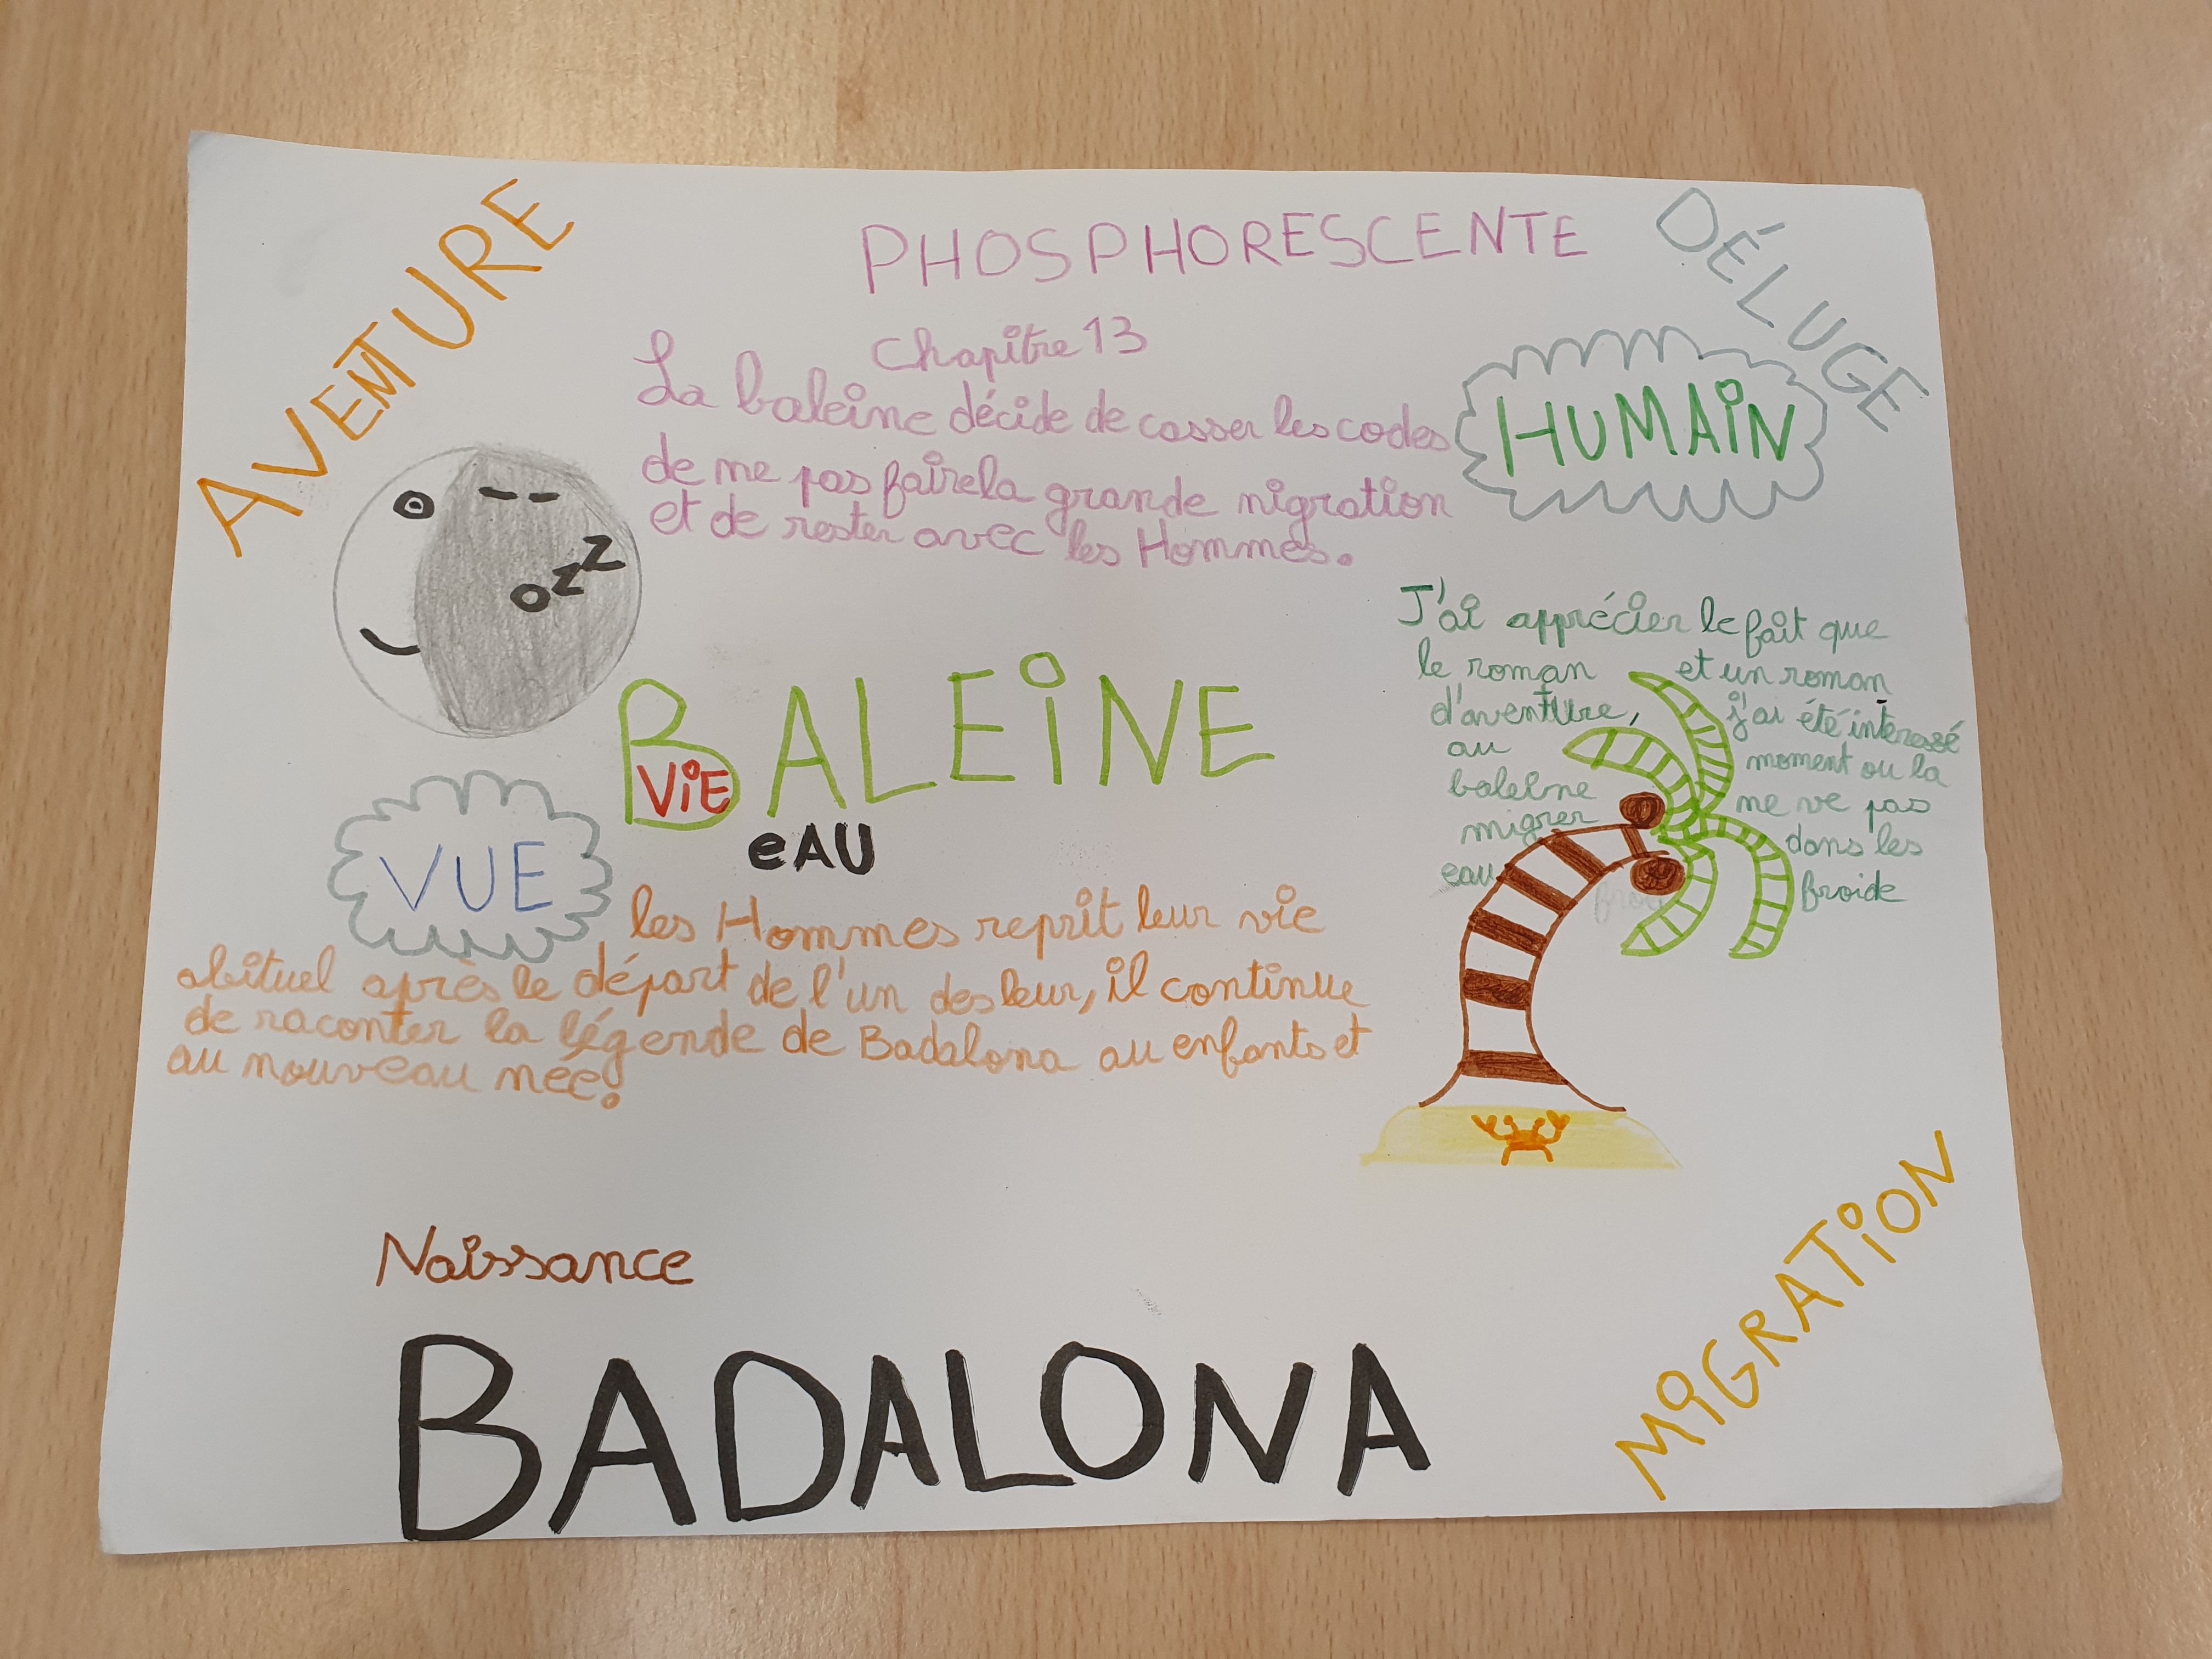 AVENTURE
PHOSPHORESCENTE
DÉLUGE
Chapitre 13
La baleine décide de casser les codes
de ne pas faire la grande nigration
et de rester avec les Hommes.
HUMAIN
ozz
J'ai apprécier le fait que
le roman et un roman
d'aventure, j'ai été interessé
au moment ou la
baleine ne ve pas
migrer dans les
eau froide
BALEINE
VIE
eAU
VUE
les Hommes reprit leur vie
abituel après le départ de l'un des leur, il continue
de raconter la légende de Badalona au enfants et
au nouveau née.
Naissance
MIGRATION
BADALONA